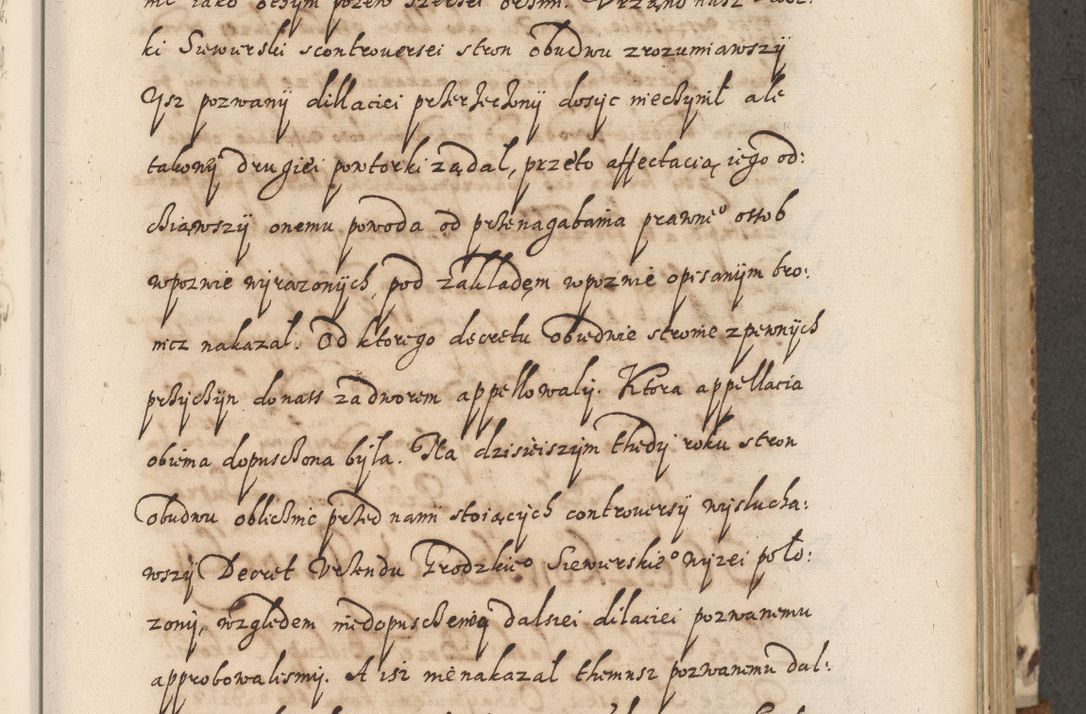 ki Siewierski scontroversei stron obudwu zrozumiawszÿ
Ysz pozwanÿ dillaciei przerzeczonÿ dosÿc nieczÿnił ale
takowÿ drugiei powtorki ządał, przeto affectacią iego od:
chiąwszÿ onemu powoda od przenagabania prawneº ossob
wpozwie wÿrazonÿch, pod zakładęm wpozwie opisanÿm bro:
nicz nakazał. Od ktorego decretu obiedwie stronie zpewnÿch
przÿczÿn do nass zadworem appellowalÿ. Ktora appellacia
obiema dopusczona bÿła. Na dzisieiszÿm thedÿ roku stron
Obudwu oblicznie przed nami stoiącÿch controversÿ wÿsłucha:
wszÿ Decret Vrzendu Grodzkieº Siewierskieº wÿzei poło:
zonÿ, względem niedopusczenia dalsiei dilaciei pozwanemu
approbowalismÿ. A isz nienakazał themusz pozwanemu dal: